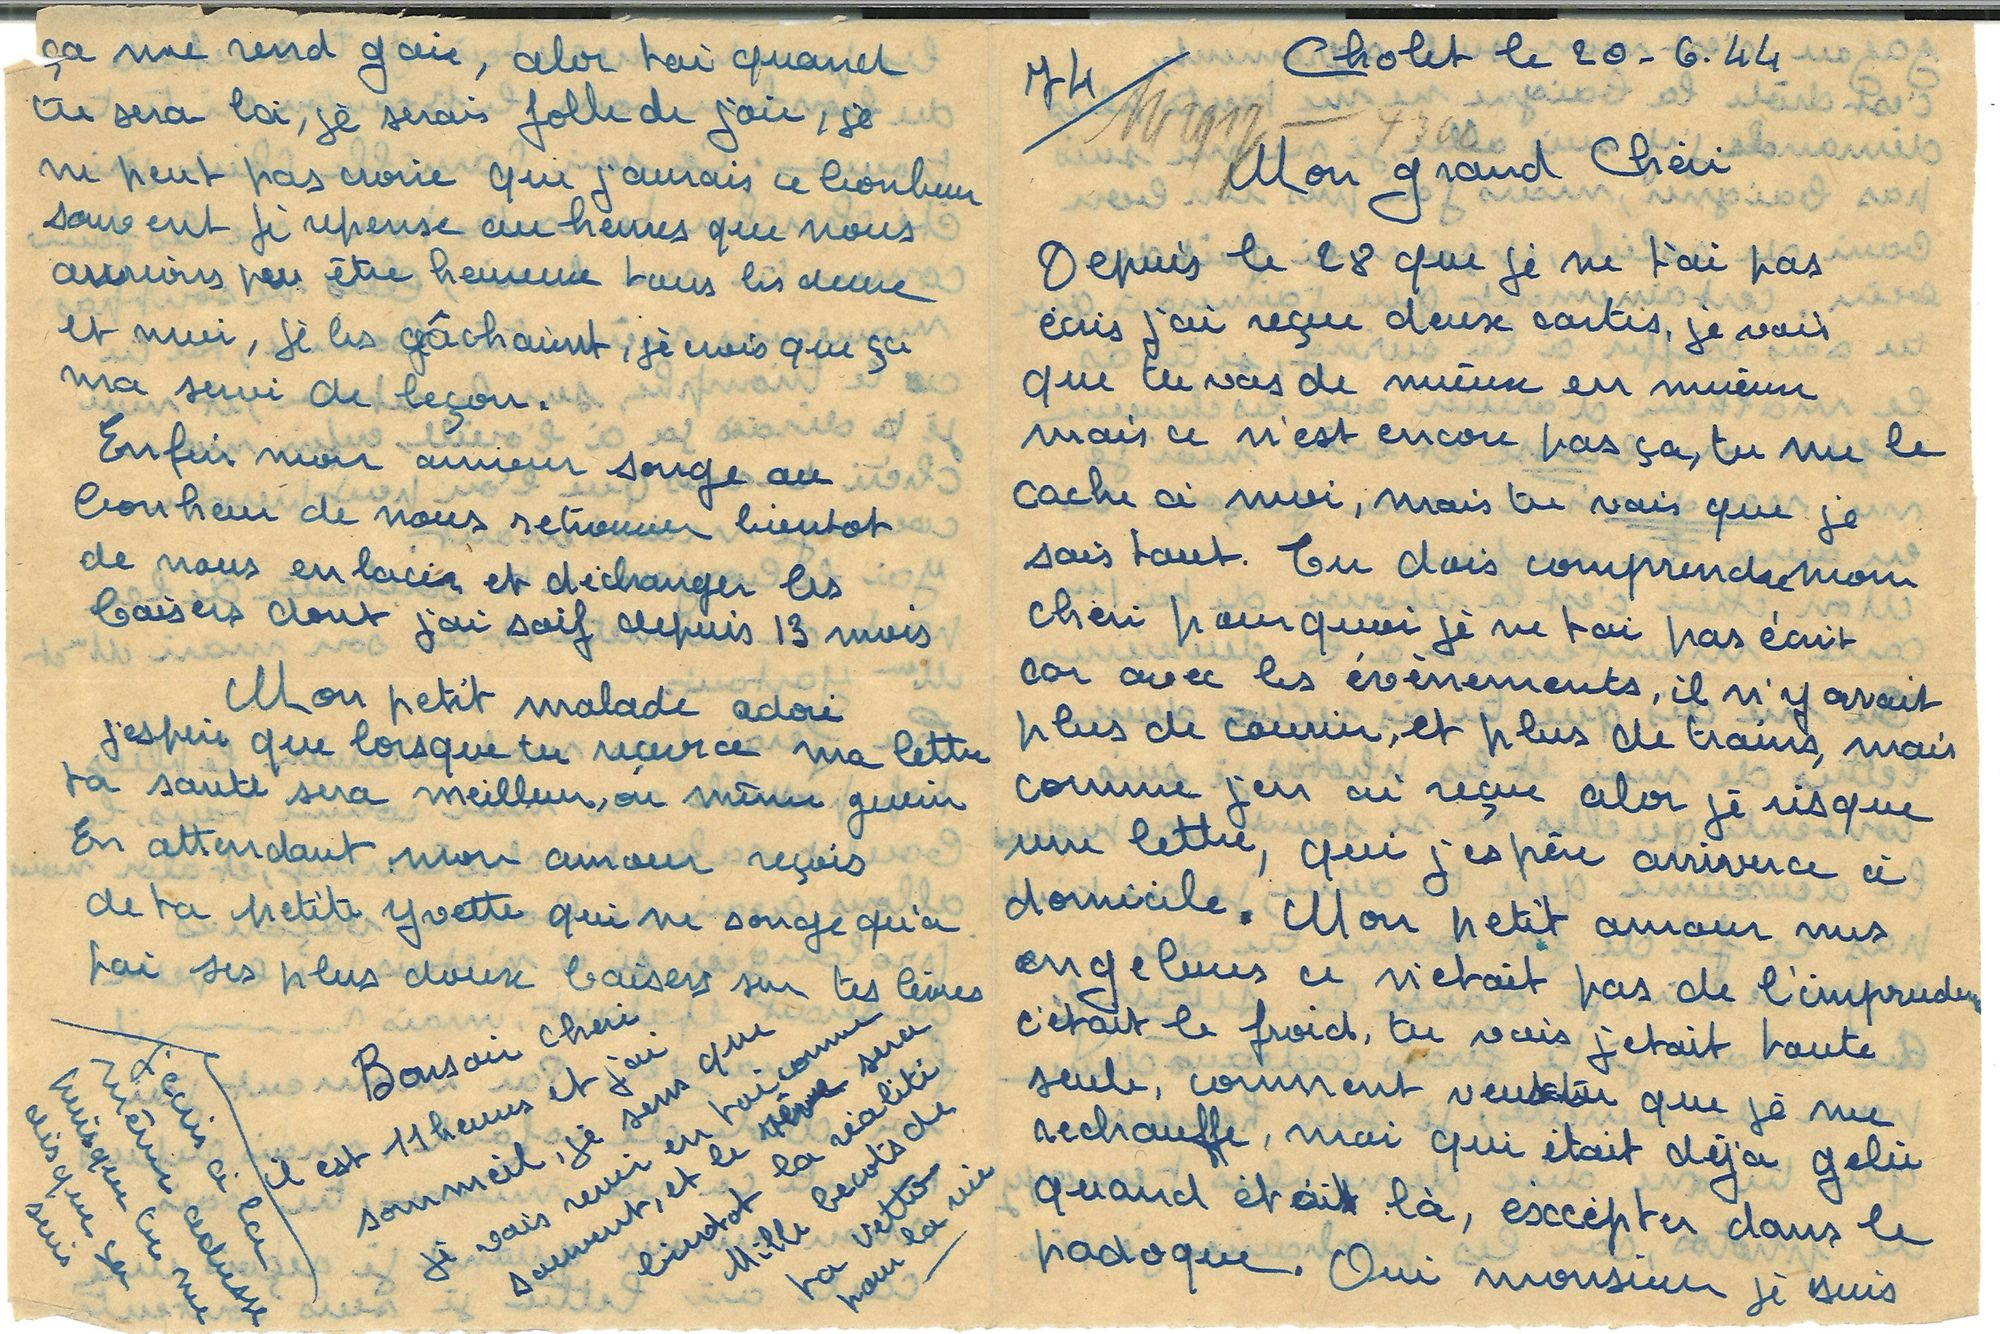 74
Cholet le 20-6.44
Mon grand Chéri
Depuis le 28 que je ne t'ai pas
écris j'ai reçue deux cartes, je vois
que tu vas de mieux en mieux
mais ce n'est encore pas ça, tu me le
cache à moi, mais tu vois que je
sais tout. Tu dois comprendre mon
chéri pourquoi je ne t'ai pas écrit
car avec les évènements, il n'y avait
plus de courrier, et plus de trains, mais
comme j'en ai reçue alor je risque
une lettre, qui j'espère arrivera à
domicile. Mon petit amour mes
engelures ce n'était pas de l'imprudence
c'était le froid, tu vois j'etait toute
seule, comment veux tu que je me
rechauffe, moi qui était déja gelée
quand était là, exccépter dans le
padoque. Oui monsieur je suis
ça me rend gaie, alor toi quand
tu sera loi, je serais folle de joie, je
ne peut pas croire que j'aurais ce bonheur
souvent je repense au heures que nous
aurions pu être heureux tous les deux
et moi, je les gâchaient, je crois que ça
ma servi de leçon.
Enfin mon amour songe au
bonheur de nous retrouver bientot
de nous enlacer et déchanger les
baisers dont j'ai soif depuis 13 mois
Mon petit malade adoré
j'espère que lorsque tu recevra ma lettre
ta santé sera meilleur, ou même guéri
En attendant mon amour reçois
de ta petite Yvette qui ne songe qu'a
toi ses plus doux baisers sur tes lèvres
Bonsoir chéri
il est 11 heures et j'ai
sommeil, je sens que
je vais rever en toi comme
souvent, et le rêve sera
bientot la réalité
Mille becots de
ta vette
pour la vie
J'écris à la
même adresse
puisque tu me
dis que tu
suis